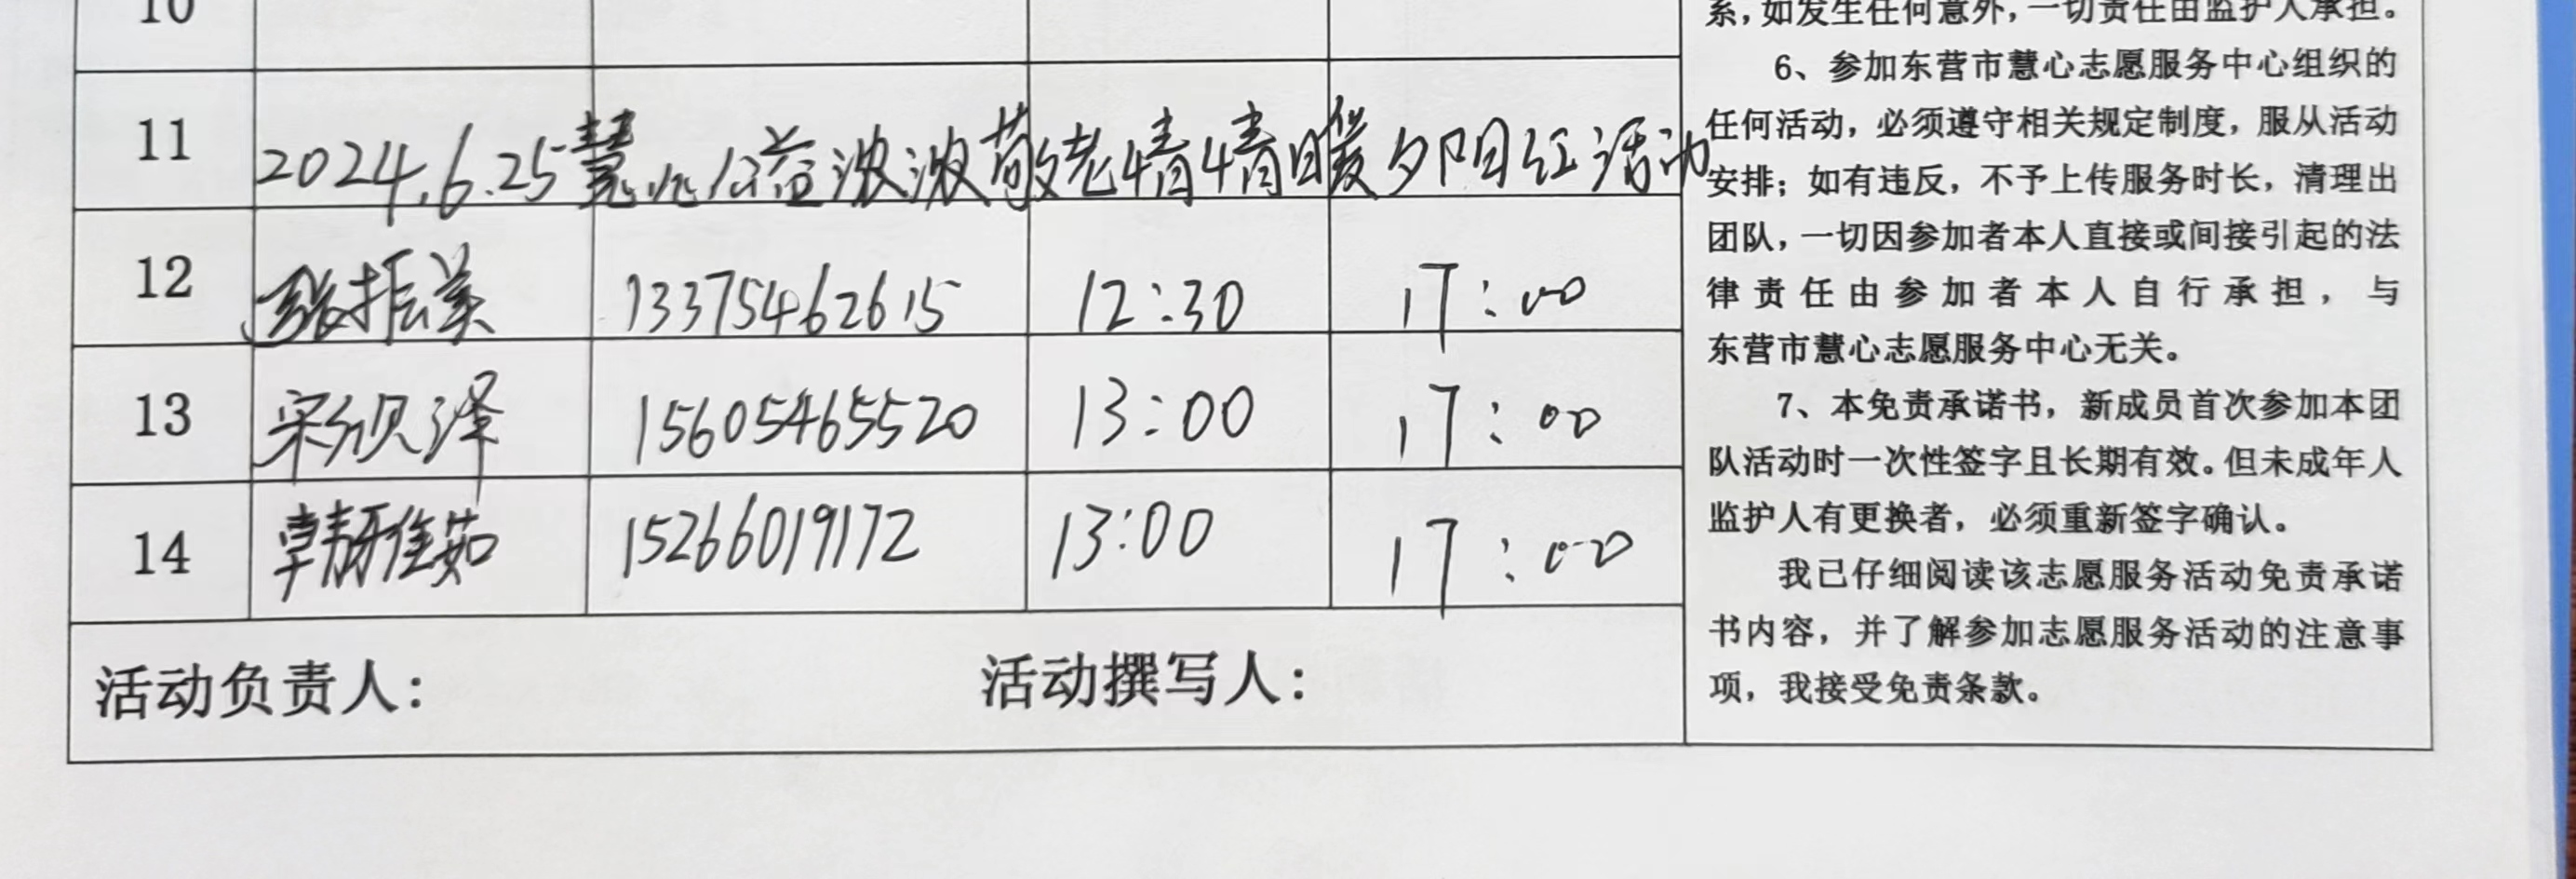 10
11 2024.6.25慧心公益浓浓敬老情情暖夕阳红活动
12 张振美 13375462615 12:30 17:00
13 宋欣泽 15605465520 13:00 17:00
14 韩雅茹 15266019172 13:00 17:00
活动负责人： 活动撰写人：
系，如发生任何意外，一切责任由监护人承担。
6、参加东营市慧心志愿服务中心组织的
任何活动，必须遵守相关规定制度，服从活动
安排；如有违反，不予上传服务时长，清理出
团队，一切因参加者本人直接或间接引起的法
律责任由参加者本人自行承担，与
东营市慧心志愿服务中心无关。
7、本免责承诺书，新成员首次参加本团
队活动时一次性签字且长期有效。但未成年人
监护人有更换者，必须重新签字确认。
我已仔细阅读该志愿服务活动免责承诺
书内容，并了解参加志愿服务活动的注意事
项，我接受免责条款。